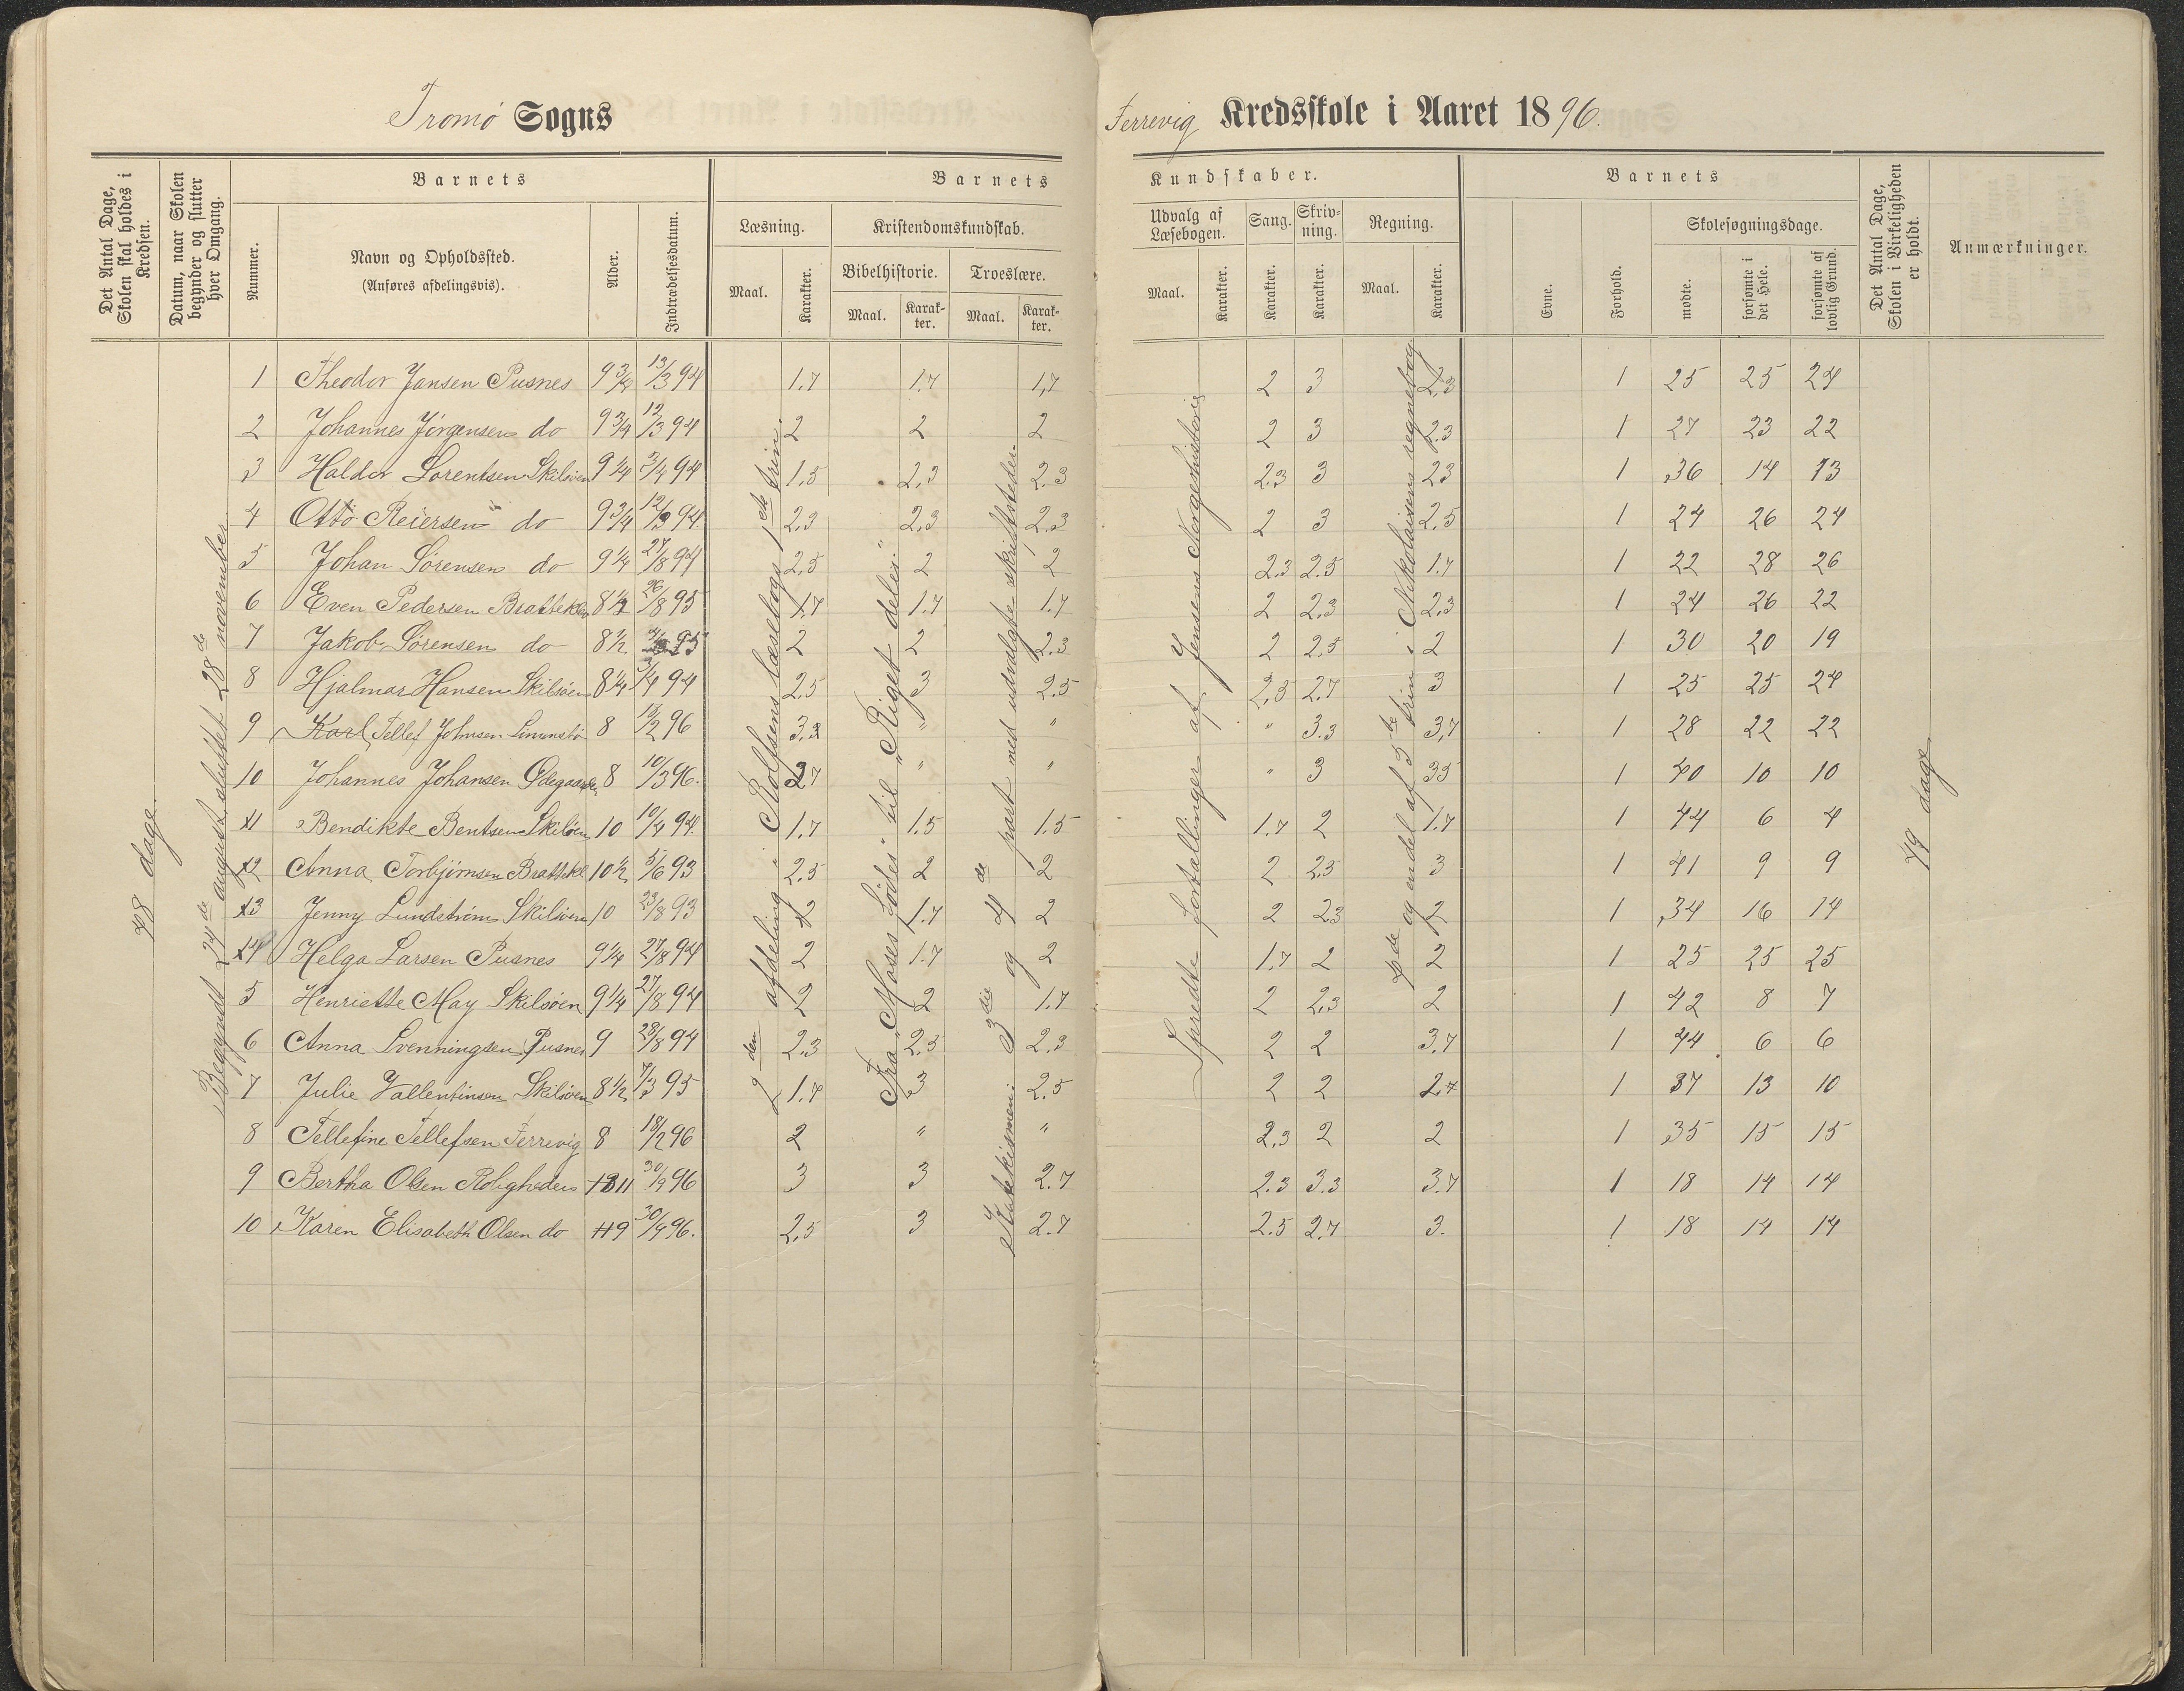 Tromø Sogns
Færrevig Kredsskole i Aaret 1896.
Det Antal Dage, Skolen skal holdes i Kredsen.
Datum, naar Skolen begynder og slutter hver Omgang.
Barnets
Nummer.
Navn og Opholdssted.
(Anføres afdelingsvis).
Alder.
Indtrædelsesdatum.
Barnets
Læsning.
Maal.
Karakter.
Kristendomskundskab.
Bibelhistorie.
Maal.
Karakter.
Troeslære.
Maal.
Karakter.
Kundskaber.
Udvalg af Læsebogen.
Maal.
Karakter.
Sang.
Karakter.
Skrivning.
Karakter.
Regning.
Maal.
Karakter.
Barnets
Evne.
Forhold.
Skolesøgningsdage.
mødte.
forsømte i det Hele.
forsømte af lovlig Grund.
Det Antal Dage, Skolen i Virkeligheden er holdt.
Anmærkninger.
48 dage.
Begyndt 24de august, sluttet 28de november.
2den afdeling i Rolfsens læsebogs 1ste trin.
Fra "Moses fødes" til "Riget deles"
Katekismen: 3die og 4de part med udvalgte skriftsteder.
Spredte fortællinger af Jensens Norgeshistorie
2de og en del af 3die trin i Nikolaisens regnebog
49 dage
1 Theodor Jansen Pusnes 9 3/4 13/3 94 1.7 1.7 1,7 2 3 2,3 1 25 25 24
2 Johannes Jørgensen do 9 3/4 12/3 94 2 2 2 2 3 2.3 1 27 23 22
3 Haldor Lorentsen Skilsøen 9 1/4 3/4 94 1.5 2,3 2.3 2.3 3 23 1 36 14 13
4 Otto Reiersen do 9 3/4 12/3 94 2,3 2,3 2,3 2 3 2,5 1 24 26 24
5 Johan Sørensen do 9 1/4 27/8 94 2,5 2 2 2.3 2.5 1.7 1 22 28 26
6 Even Pedersen Brattekleiv 8 1/2 26/8 95 1.7 1.7 1.7 2 2,3 2,3 1 24 26 22
7 Jakob Sørensen do 8 1/2 95 2 2 2.3 2 2,5 2 1 30 20 19
8 Hjalmar Hansen Skilsøen 8 1/4 3/4 94 2.5 3 2.5 2,5 2.7 3 1 25 25 24
9 Karl Tellef Johnsen 8 18/2 96 3,3 " " " 3.3 3,7 1 28 22 22
10 Johannes Johansen Ødegaarden 8 10/3 96. 27 " " " 3 35 1 40 10 10
11 Bendikte Bentsen Skilsøen 10 10/4 94. 1.7 1.5 1.5 1.7 2 1.7 1 44 6 4
12 Anna Torbjørnsen Brattekl 10 1/2 5/6 93 2.5 2 2 2 2.5 3 1 41 9 9
13 Jenny Lundstrøm Skilsøen 10 23/8 93 2 1.7 2 2 23 2 1 34 16 14
14 Helga Larsen Pusnes 9 1/4 27/8 94 2 1.7 2 1,7 2 2 1 25 25 25
5 Henriette May Skilsøen 9 1/4 27/8 94 2 2 1.7 2 2,3 2 1 42 8 7
6 Anna Svenningsen Pusnes 9 28/8 94 2.3 2.5 2.3 2 2 3.7 1 44 6 6
7 Julie Vallentinsen Skilsøen 8 1/2 7/3 95 1.7 3 2.5 2 2 2.7 1 37 13 10
8 Tellefine Tellefsen Færrevig 8 18/2 96 2 " " 2,3 2 2 1 35 15 15
9 Bertha Olsen Roligheden 11 30/9 96 3 3 2.7 2.3 3.3 3.7 1 18 14 14
10 Karen Elisabeth Olsen do 9 30/9 96. 2,5 3 2.7 2.5 2,7 3. 1 18 14 14